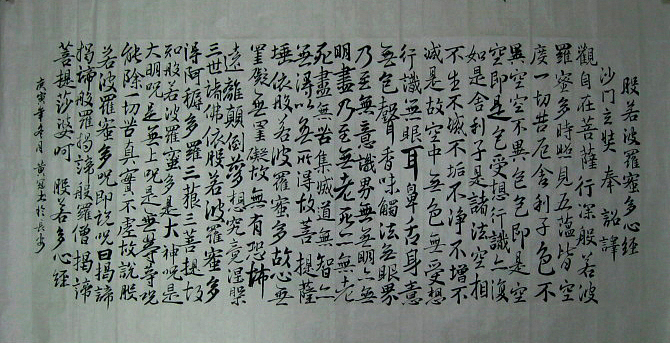 般若波羅蜜多心經
沙门玄奘奉詔譯
觀自在菩薩行深般若波
羅蜜多時照見五蘊皆空
度一切苦厄舍利子色不
異空空不異色色即是空
空即是色受想行識亦復
如是舍利子是諸法空相
不生不滅不垢不淨不增不
減是故空中無色無受想
行識無眼耳鼻舌身意
無色聲香味觸法無眼界
乃至無意識界無無明亦無
明盡乃至無老死亦無老
死盡無苦集滅道無智亦
無得以無所得故菩提薩
埵依般若波羅蜜多故心無
罣礙無罣礙故無有恐怖
遠離顛倒夢想究竟涅槃
三世諸佛依般若波羅蜜多
得阿耨多羅三藐三菩提故
知般若波羅蜜多是大神咒是
大明咒是無上咒是無等等咒
能除一切苦真實不虛故說般
若波羅蜜多咒即說咒曰揭諦
揭諦般羅揭諦般羅僧揭諦
菩提沙婆呵 般若多心經
庚寅年冬月 黄